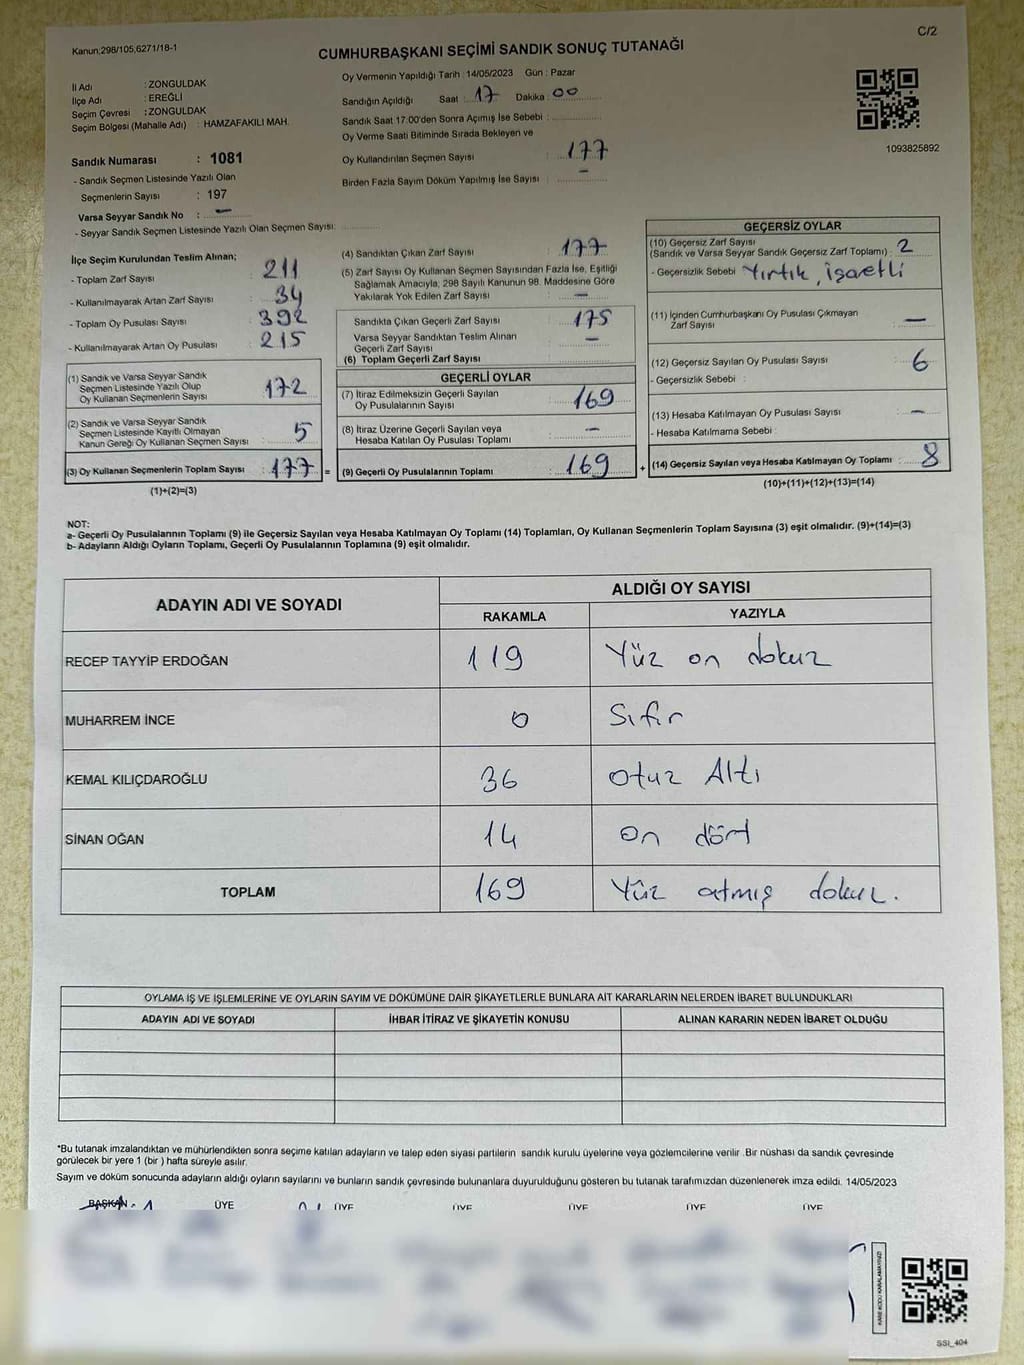 Kanun;298/105,6271/18-1
C/2
CUMHURBAŞKANI SEÇİMİ SANDIK SONUÇ TUTANAĞI
İl Adı : ZONGULDAK
İlçe Adı : EREĞLİ
Seçim Çevresi : ZONGULDAK
Seçim Bölgesi (Mahalle Adı) : HAMZAFAKILI MAH.
Sandık Numarası : 1081
- Sandık Seçmen Listesinde Yazılı Olan
Seçmenlerin Sayısı : 197
Varsa Seyyar Sandık No : –
- Seyyar Sandık Seçmen Listesinde Yazılı Olan Seçmen Sayısı:
Oy Vermenin Yapıldığı Tarih : 14/05/2023 Gün : Pazar
Sandığın Açıldığı Saat : 17 Dakika : 00
Sandık Saat 17:00'den Sonra Açımış İse Sebebi :
Oy Verme Saati Bitiminde Sırada Bekleyen ve
Oy Kullandırılan Seçmen Sayısı : 177
Birden Fazla Sayım Döküm Yapılmış İse Sayısı : –
1093825892
İlçe Seçim Kurulundan Teslim Alınan;
- Toplam Zarf Sayısı : 211
- Kullanılmayarak Artan Zarf Sayısı : 34
- Toplam Oy Pusulası Sayısı : 392
- Kullanılmayarak Artan Oy Pusulası : 215
(1) Sandık ve Varsa Seyyar Sandık
Seçmen Listesinde Yazılı Olup
Oy Kullanan Seçmenlerin Sayısı : 172
(2) Sandık ve Varsa Seyyar Sandık
Seçmen Listesinde Kayıtlı Olmayan
Kanun Gereği Oy Kullanan Seçmen Sayısı : 5
(3) Oy Kullanan Seçmenlerin Toplam Sayısı : 177 =
(1)+(2)=(3)
(4) Sandıktan Çıkan Zarf Sayısı : 177
(5) Zarf Sayısı Oy Kullanan Seçmen Sayısından Fazla İse, Eşitliği
Sağlamak Amacıyla; 298 Sayılı Kanunun 98. Maddesine Göre
Yakılarak Yok Edilen Zarf Sayısı : –
Sandıkta Çıkan Geçerli Zarf Sayısı : 175
Varsa Seyyar Sandıktan Teslim Alınan
Geçerli Zarf Sayısı : –
(6) Toplam Geçerli Zarf Sayısı
GEÇERLİ OYLAR
(7) İtiraz Edilmeksizin Geçerli Sayılan
Oy Pusulalarının Sayısı : 169
(8) İtiraz Üzerine Geçerli Sayılan veya
Hesaba Katılan Oy Pusulası Toplamı : –
(9) Geçerli Oy Pusulalarının Toplamı : 169 +
GEÇERSİZ OYLAR
(10) Geçersiz Zarf Sayısı
(Sandık ve Varsa Seyyar Sandık Geçersiz Zarf Toplamı) : 2
- Geçersizlik Sebebi : Yırtık, işaretli
(11) İçinden Cumhurbaşkanı Oy Pusulası Çıkmayan
Zarf Sayısı : –
(12) Geçersiz Sayılan Oy Pusulası Sayısı : 6
- Geçersizlik Sebebi :
(13) Hesaba Katılmayan Oy Pusulası Sayısı : –
- Hesaba Katılmama Sebebi :
(14) Geçersiz Sayılan veya Hesaba Katılmayan Oy Toplamı : 8
(10)+(11)+(12)+(13)=(14)
NOT:
a- Geçerli Oy Pusulalarının Toplamı (9) ile Geçersiz Sayılan veya Hesaba Katılmayan Oy Toplamı (14) Toplamları, Oy Kullanan Seçmenlerin Toplam Sayısına (3) eşit olmalıdır. (9)+(14)=(3)
b- Adayların Aldığı Oyların Toplamı, Geçerli Oy Pusulalarının Toplamına (9) eşit olmalıdır.
ADAYIN ADI VE SOYADI
ALDIĞI OY SAYISI
RAKAMLA YAZIYLA
RECEP TAYYİP ERDOĞAN 119 Yüz on dokuz
MUHARREM İNCE 0 Sıfır
KEMAL KILIÇDAROĞLU 36 otuz Altı
SİNAN OĞAN 14 on dört
TOPLAM 169 Yüz atmış dokuz.
OYLAMA İŞ VE İŞLEMLERİNE VE OYLARIN SAYIM VE DÖKÜMÜNE DAİR ŞİKAYETLERLE BUNLARA AİT KARARLARIN NELERDEN İBARET BULUNDUKLARI
ADAYIN ADI VE SOYADI İHBAR İTİRAZ VE ŞİKAYETİN KONUSU ALINAN KARARIN NEDEN İBARET OLDUĞU
*Bu tutanak imzalandıktan ve mühürlendikten sonra seçime katılan adayların ve talep eden siyasi partilerin sandık kurulu üyelerine veya gözlemcilerine verilir .Bir nüshası da sandık çevresinde
görülecek bir yere 1 (bir ) hafta süreyle asılır.
Sayım ve döküm sonucunda adayların aldığı oyların sayılarını ve bunların sandık çevresinde bulunanlara duyurulduğunu gösteren bu tutanak tarafımızdan düzenlenerek imza edildi. 14/05/2023
BAŞKAN ÜYE ÜYE ÜYE ÜYE ÜYE ÜYE
KARE KODU KARALAMAYINIZ!
SSI_404